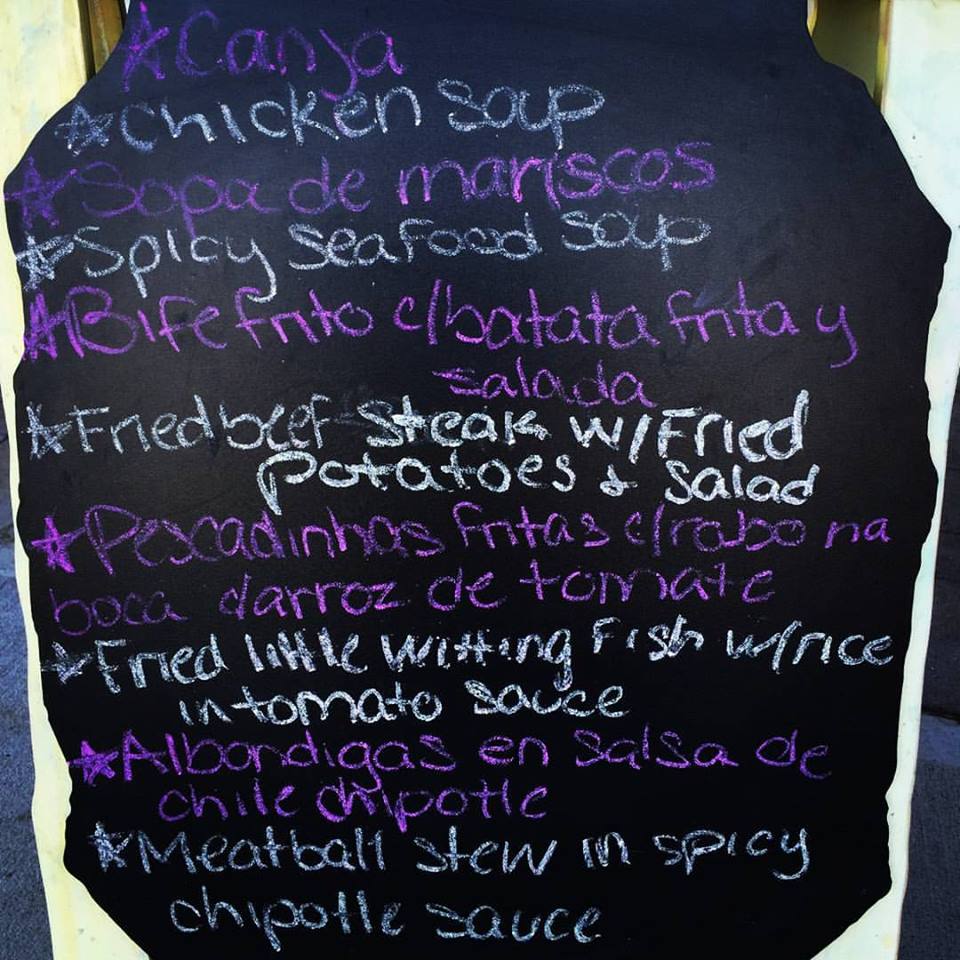 ☆Canja
☆Chicken soup
☆Sopa de mariscos
☆Spicy seafood soup
☆Bife frito c/batata frita y
salada
☆Fried beef steak w/Fried
potatoes & salad
☆Pescadinhas fritas c/rabo na
boca d/arroz de tomate
☆Fried little witting Fish w/rice
in tomato sauce
☆Albondigas en salsa de
chile chipotle
☆Meatball stew in spicy
chipotle sauce